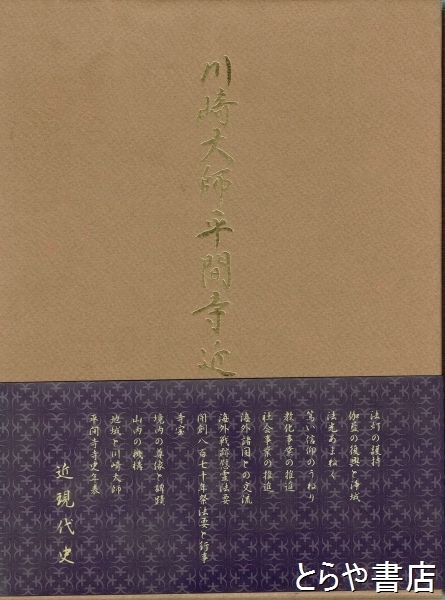 川崎大師平間寺近
法灯の護持
伽藍の復興と浄域
法光あまねく
篤い信仰のうねり
教化事業の推進
社会事業の推進
海外諸国との交流
海外戦跡慰霊法要
開創八百七十年祭法要と行事
寺宝
境内の尊像と碑蹟
山内の機構
地域と川崎大師
平間寺寺史年表
近現代史
とらや書店